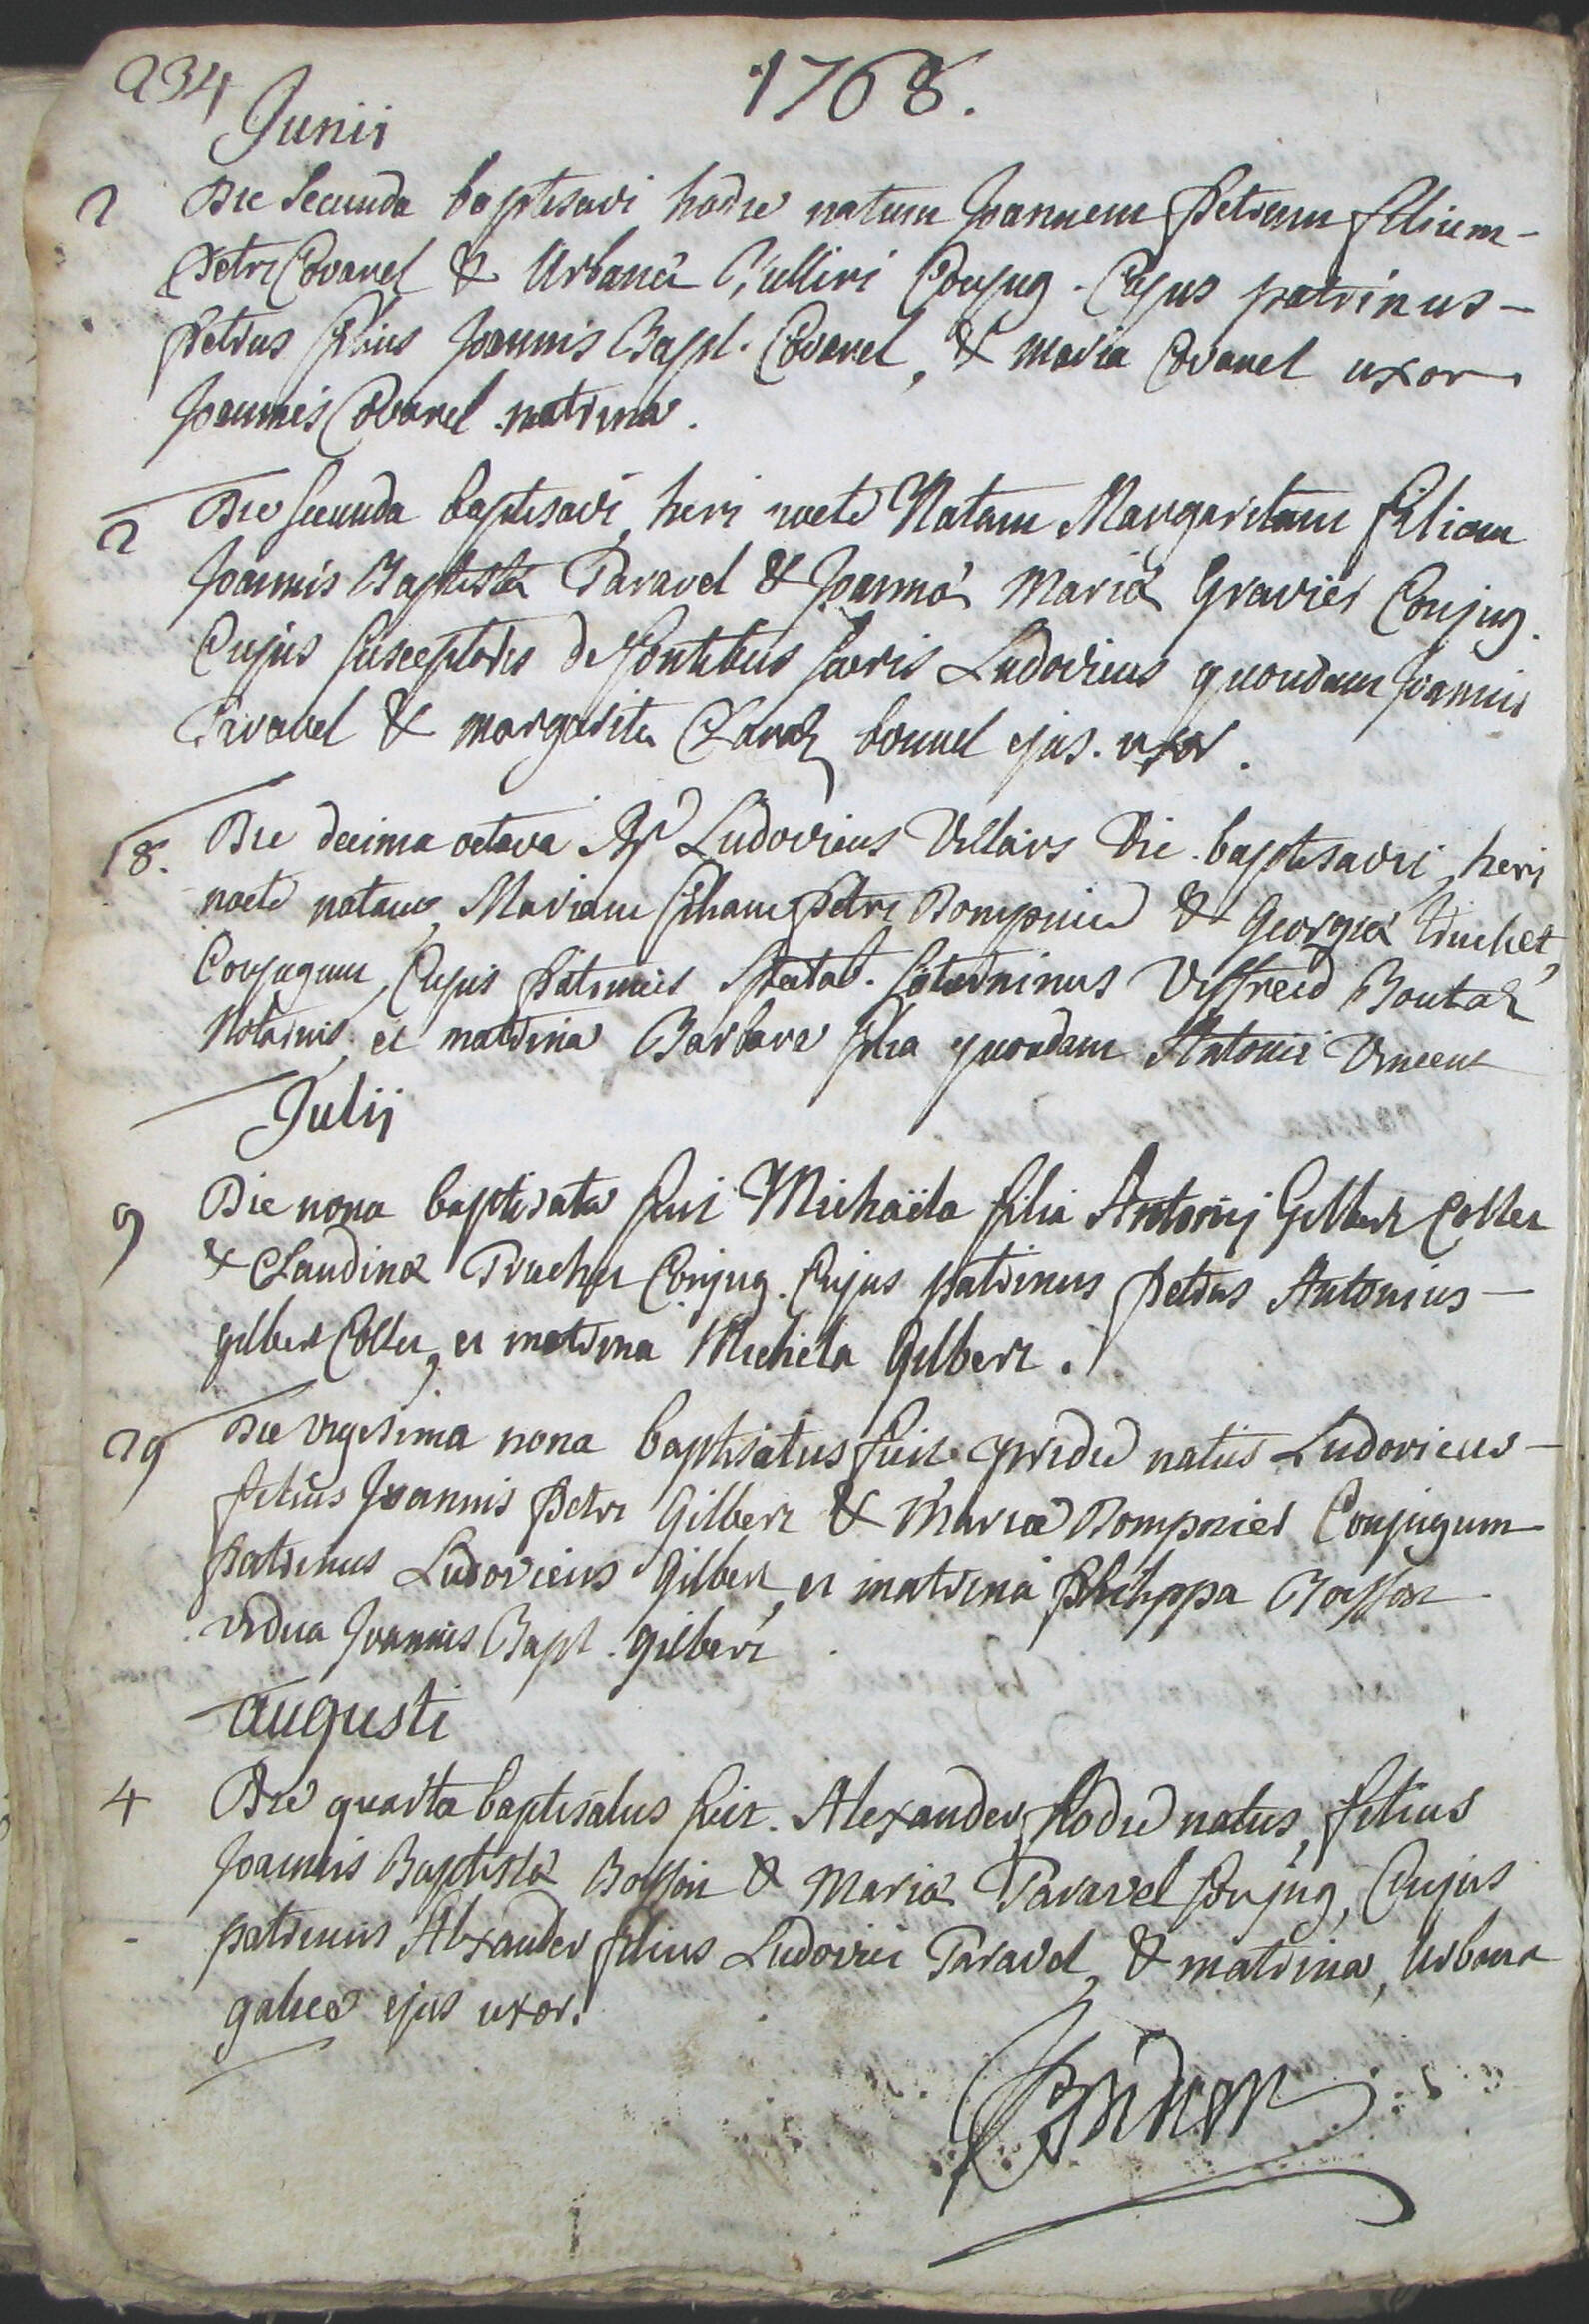 234
1768.
Junii
2 Die Secunda baptisavi hodie natum Joannem Petrum filium
Petri Covarel & Urbanæ Vulliri Conjug. Cujus patrinus
Petrus filius Joannis Bapt. Covarel, & maria Covarel uxor
Joannis Covarel matrina.
2 Die secunda baptisavi, heri nocte Natam Margaritam filiam
Joannis Baptistæ Taravel & Joannæ Mariæ Gravier Conjug.
Cujus susceptores de fontibus sacris Ludovicus quondam Joannis
Taravel & margarita Claraz bonnel ejus uxor.
18. Die decima octava Rd Ludovicus Villars Vic. baptisavit, heri
nocte natam, Mariam filiam Petri Bompnier & Georgiæ Truchet,
Conjugum, Cujus Patrinus Spectab. Saturninus Viffred Boutaz
Notarius, et matrina Barbara filia quondam Antonii Vincent
Julij
9 Die nona baptisata fuit Michaëla filia Antonij Gilbert Collet
& Claudinæ Truchet Conjug. Cujus patrinus Petrus Antonius
gilbert Collet, et matrina Michela Gilbert.
29 Die vigesima nona baptisatus fuit, pridie natus Ludovicus
filius Joannis Petri Gilbert & Mariæ Bompnier Conjugum
Patrinus Ludovicus Gilbert, et matrina Philippa Bosson
vidua Joannis Bapt. gilbert
augusti
4 Die quarta baptisatus fuit Alexander, hodie natus, filius
Joannis Baptistæ Bosson & Mariæ Taravel Conjug, Cujus
patrinus Alexander filius Ludovici Taravel, & matrina, Urbana
galice ejus uxor.